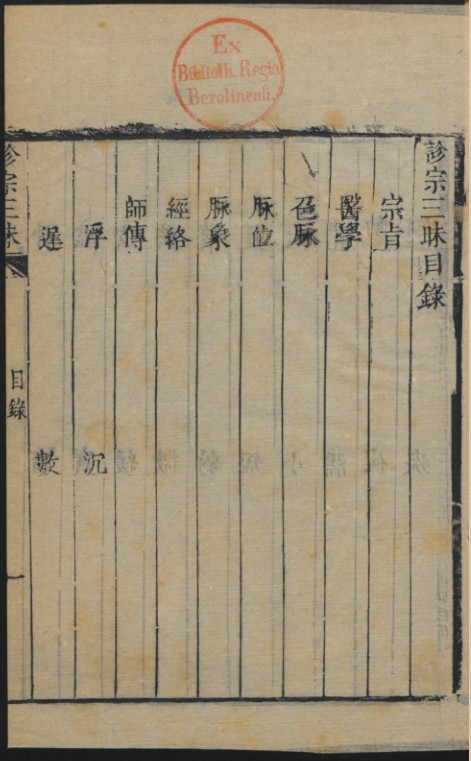 Ex
Biblioth. Regia
Berolinensi.
診宗三昧目錄
宗旨
醫學
色脈
脉位
脈象
經絡
師傳
浮 沉
遲 數
診宗三昧
目錄